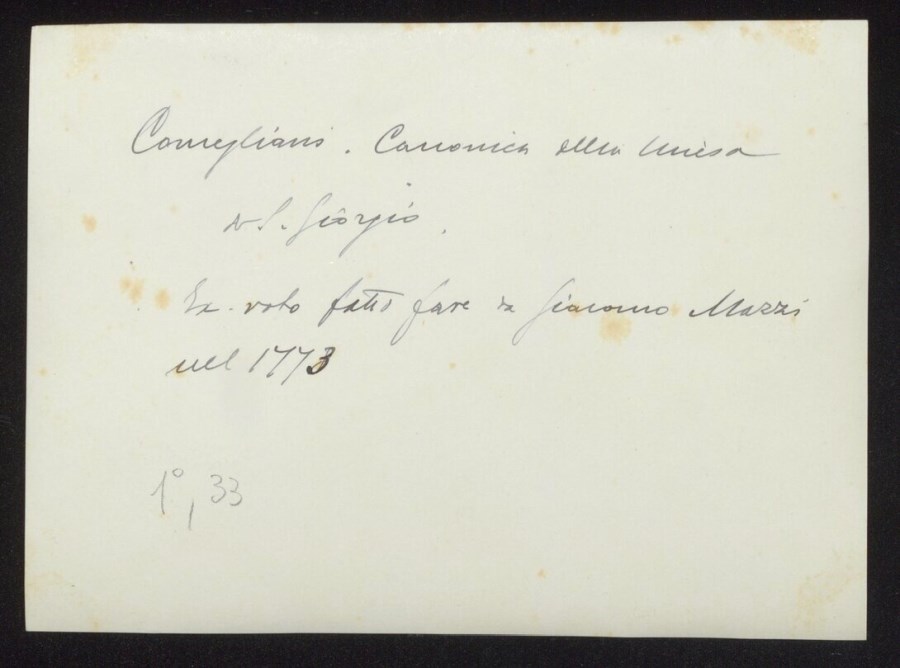 Comeglians. Canonica della Chiesa
di S. Giorgio.
Ex-voto fatto fare da Giacomo Mazzi
nel 1773
1°, 33